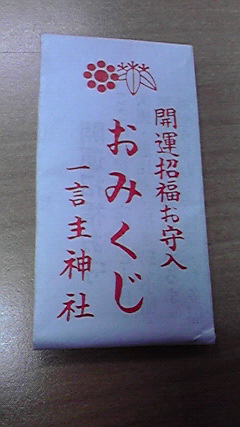 開運招福お守入
おみくじ
一言主神社